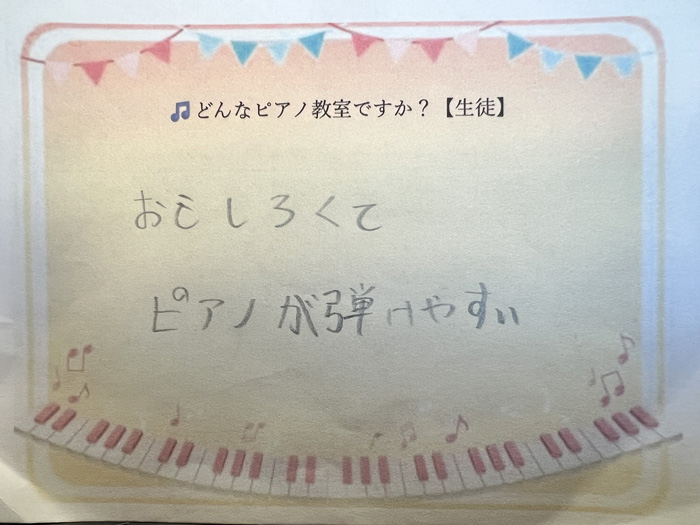 🎵どんなピアノ教室ですか？【生徒】
おもしろくて
ピアノが弾けやすい